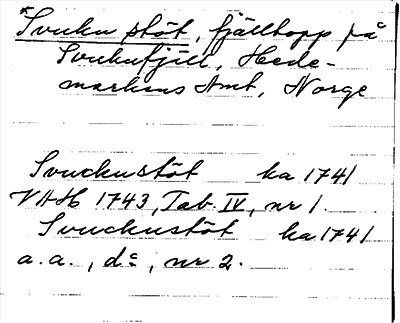 *Svuku stöt, fjälltopp på
Svukufjäll, Hede-
markens Amt, Norge
Svuckustöt ka 1741
VAH 1743, Tab. IV, nr 1.
Svuckustöt ka 1741
a.a., d:o, nr 2.